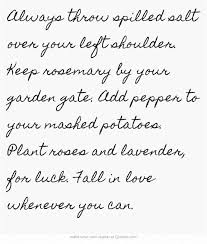 Always throw spilled salt
over your left shoulder.
Keep rosemary by your
garden gate. Add pepper to
your mashed potatoes.
Plant roses and lavender,
for luck. Fall in love
whenever you can.